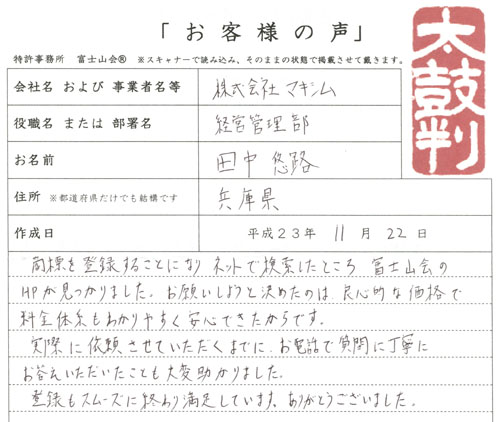 「お客様の声」
特許事務所 富士山会® ※スキャナーで読み込み、そのままの状態で掲載させて戴きます。
太鼓判
会社名 および 事業者名等 株式会社マキシム
役職名 または 部署名 経営管理部
お名前 田中 悠路
住所 ※都道府県だけでも結構です 兵庫県
作成日 平成23年 11月 22日
商標を登録することになり ネットで検索したところ 富士山会の
HPが見つかりました。お願いしようと決めたのは 良心的な価格で
料金体系もわかりやすく安心できたからです。
実際に依頼させていただくまでに、お電話で質問に丁寧に
お答えいただいたことも大変助かりました。
登録もスムーズに終わり満足しています。ありがとうございました。